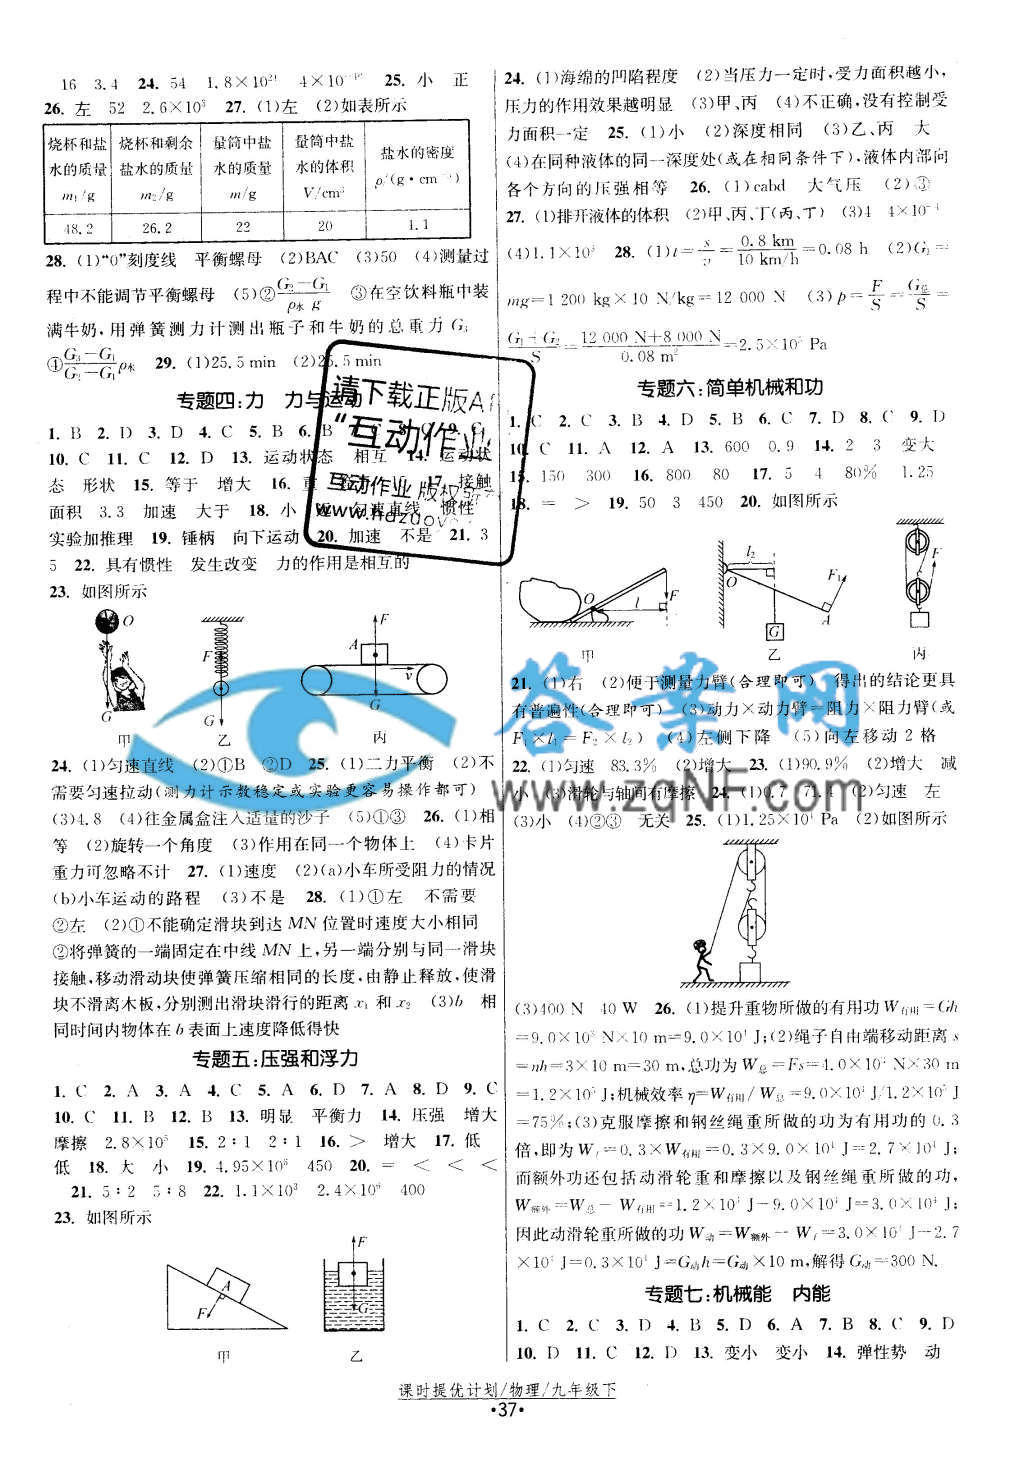 16 3.4 24. 54 1.8×10²¹ 25. 小 正
26. 左 52 2.6×10³ 27. (1)左 (2)如表所示
烧杯和盐水的质量 m₁/g 烧杯和剩余盐水的质量 m₂/g 量筒中盐水的质量 m/g 量筒中盐水的体积 V/cm³ 盐水的密度 ρ/(g·cm⁻³)
48.2 26.2 22 20 1.1
28. (1)“0”刻度线 平衡螺母 (2)BAC (3)50 (4)测量过
程中不能调节平衡螺母 (5)②(G₂-G₁)/(ρ水 g) ③在空饮料瓶中装
满牛奶,用弹簧测力计测出瓶子和牛奶的总重力 G₃
④(G₃-G₁)/(G₂-G₁)ρ水 29. (1)25.5 min (2)25.5 min
专题四:力 力与运动
1. B 2. D 3. D 4. C 5. B 6. B 7. C 8. C 9. C
10. C 11. C 12. D 13. 运动状态 相互 14. 运动状
态 形状 15. 等于 增大 16. 重 17. 接触
面积 3.3 加速 大于 18. 小 匀速直线 惯性
实验加推理 19. 锤柄 向下运动 20. 加速 不是 21. 3
5 22. 具有惯性 发生改变 力的作用是相互的
23. 如图所示
O G 甲
F G 乙
F A v G 丙
24. (1)匀速直线 (2)①B ②D 25. (1)二力平衡 (2)不
需要匀速拉动(测力计示数稳定或实验更容易操作都可)
(3)4.8 (4)往金属盒注入适量的沙子 (5)①③ 26. (1)相
等 (2)旋转一个角度 (3)作用在同一个物体上 (4)卡片
重力可忽略不计 27. (1)速度 (2)(a)小车所受阻力的情况
(b)小车运动的路程 (3)不是 28. (1)①左 不需要
②左 (2)①不能确定滑块到达 MN 位置时速度大小相同
②将弹簧的一端固定在中线 MN 上,另一端分别与同一滑块
接触,移动滑动块使弹簧压缩相同的长度,由静止释放,使滑
块不滑离木板,分别测出滑块滑行的距离 x₁ 和 x₂ (3)b 相
同时间内物体在 b 表面上速度降低得快
专题五:压强和浮力
1. C 2. A 3. A 4. C 5. A 6. D 7. A 8. D 9. C
10. C 11. B 12. B 13. 明显 平衡力 14. 压强 增大
摩擦 2.8×10⁵ 15. 2∶1 2∶1 16. > 增大 17. 低
低 18. 大 小 19. 4.95×10⁶ 450 20. = < < <
21. 5∶2 5∶8 22. 1.1×10³ 2.4×10⁶ 400
23. 如图所示
A F 甲
F G 乙
24. (1)海绵的凹陷程度 (2)当压力一定时,受力面积越小,
压力的作用效果越明显 (3)甲、丙 (4)不正确,没有控制受
力面积一定 25. (1)小 (2)深度相同 (3)乙、丙 大
(4)在同种液体的同一深度处(或在相同条件下),液体内部向
各个方向的压强相等 26. (1)cabd 大气压 (2)③
27. (1)排开液体的体积 (2)甲、丙、丁(丙、丁) (3)4 4×10⁻⁴
(4)1.1×10³ 28. (1)t=s/v=0.8 km/10 km/h=0.08 h (2)G₁=
mg=1 200 kg×10 N/kg=12 000 N (3)p=F/S=G总/S=
(G₁+G₂)/S=(12 000 N+8 000 N)/0.08 m²=2.5×10⁵ Pa
专题六:简单机械和功
1. C 2. C 3. B 4. D 5. B 6. C 7. D 8. C 9. D
10. C 11. A 12. A 13. 600 0.9 14. 2 3 变大
15. 150 300 16. 800 80 17. 5 4 80% 1.25
18. = > 19. 50 3 450 20. 如图所示
O l F 甲
l₂ O F₁ A G 乙
F 丙
21. (1)右 (2)便于测量力臂(合理即可) 得出的结论更具
有普遍性(合理即可) (3)动力×动力臂=阻力×阻力臂(或
F₁×l₁=F₂×l₂) (4)左侧下降 (5)向左移动 2 格
22. (1)匀速 83.3% (2)增大 23. (1)90.9% (2)增大 减
小 (3)滑轮与轴间有摩擦 24. (1)0.7 71.4 (2)匀速 左
(3)小 (4)②③ 无关 25. (1)1.25×10⁴ Pa (2)如图所示
(3)400 N 40 W 26. (1)提升重物所做的有用功 W有用=Gh
=9.0×10³ N×10 m=9.0×10⁴ J;(2)绳子自由端移动距离 s
=nh=3×10 m=30 m,总功为 W总=Fs=4.0×10³ N×30 m
=1.2×10⁵ J;机械效率 η=W有用/W总=9.0×10⁴ J/1.2×10⁵ J
=75%;(3)克服摩擦和钢丝绳重所做的功为有用功的 0.3
倍,即为 Wf=0.3×W有用=0.3×9.0×10⁴ J=2.7×10⁴ J;
而额外功还包括动滑轮重和摩擦以及钢丝绳重所做的功,
W额外=W总-W有用=1.2×10⁵ J-9.0×10⁴ J=3.0×10⁴ J;
因此动滑轮重所做的功 W动=W额外-Wf=3.0×10⁴ J-2.7
×10⁴ J=0.3×10⁴ J=G动h=G动×10 m,解得 G动=300 N.
专题七:机械能 内能
1. C 2. C 3. D 4. B 5. D 6. A 7. B 8. C 9. D
10. D 11. C 12. D 13. 变小 变小 14. 弹性势 动
课时提优计划/物理/九年级下
·37·
请下载正版A
“互动作业
互动作业 版权
答案网
www.zqNF.com